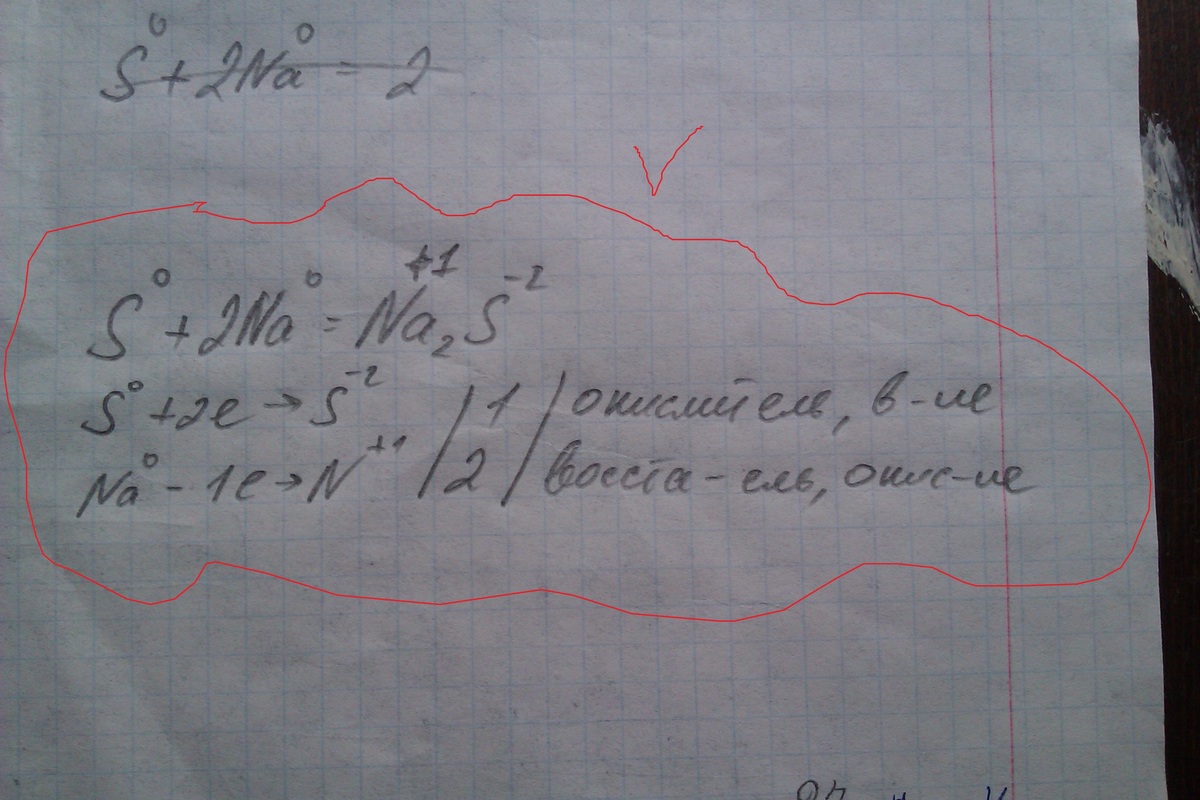 S⁰ + 2Na⁰ = 2
S⁰ + 2Na⁰ = Na₂⁺¹S⁻²
S⁰ + 2e → S⁻² / 1 / окислитель, в-ие
Na⁰ - 1e → N⁺¹ / 2 / восста-ель, окис-ие